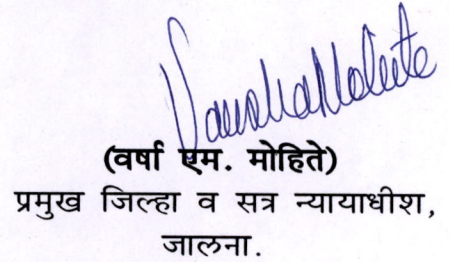 (वर्षा एम. मोहिते)
प्रमुख जिल्हा व सत्र न्यायाधीश,
जालना.